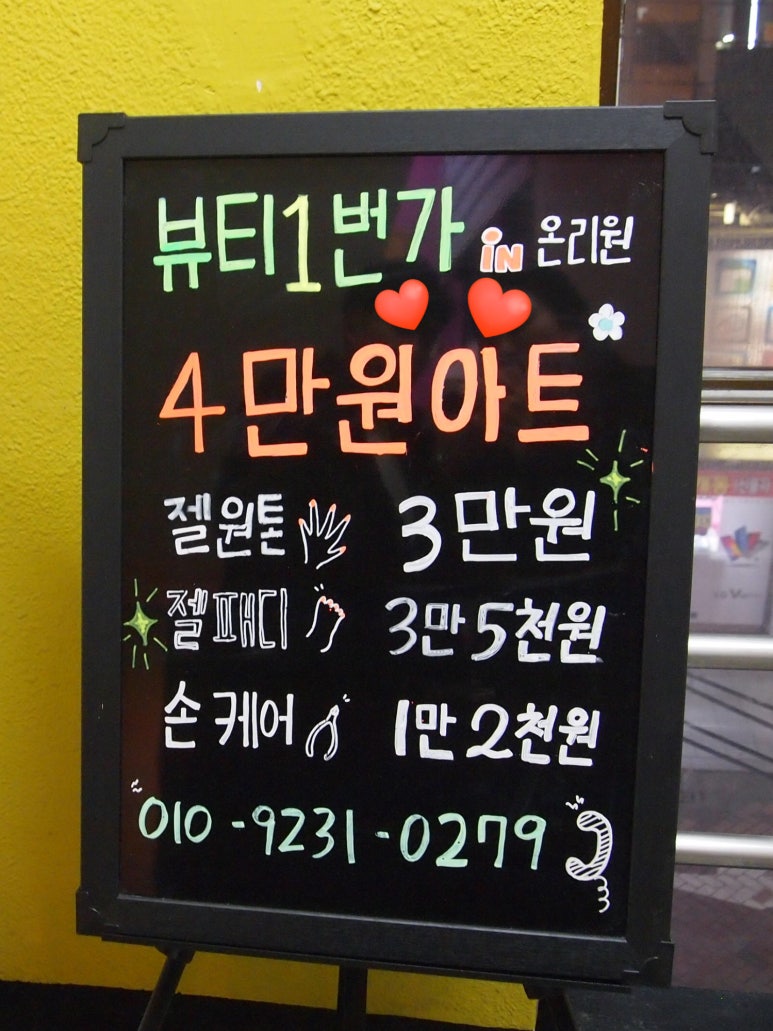 뷰티1번가 iN 온리원
4만원아트
젤원톤 3만원
젤패디 3만 5천원
손케어 1만 2천원
010-9231-0279